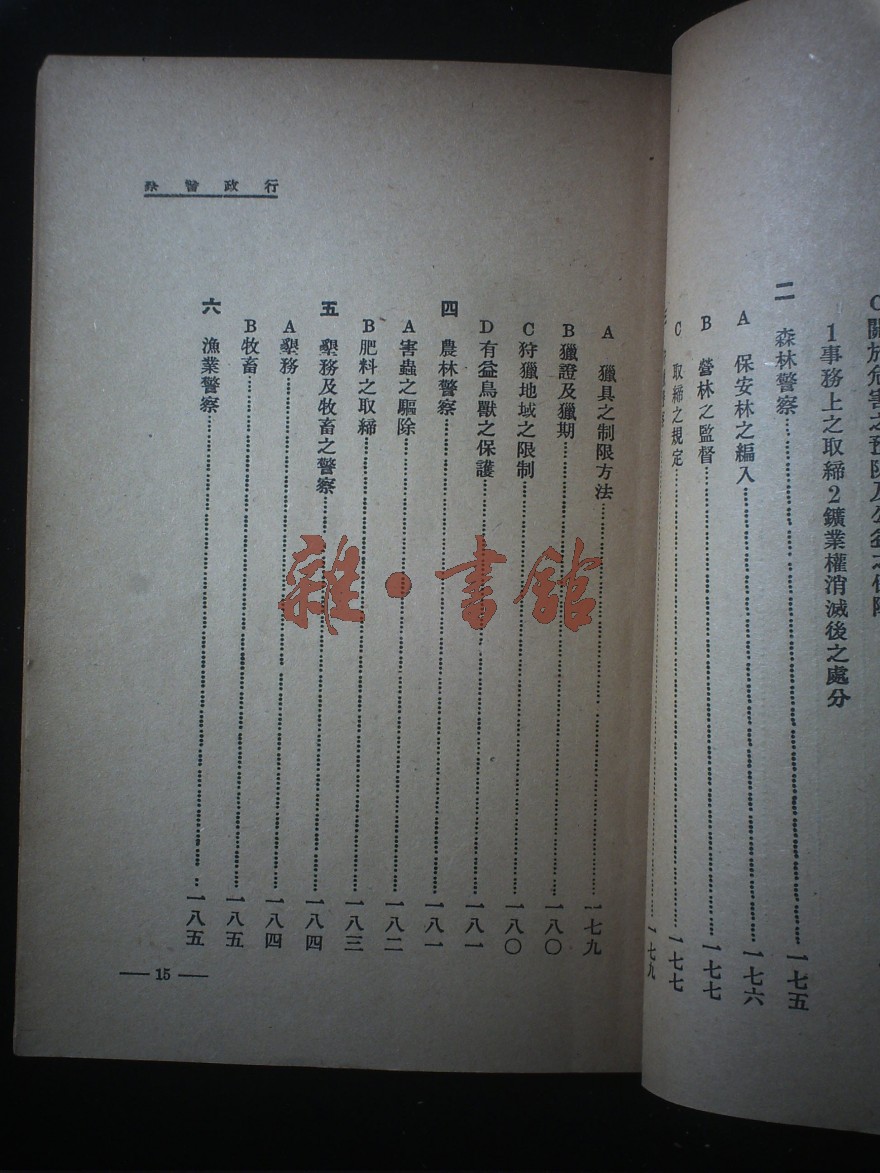 C關於危害之預防及公益之保障
1事務上之取締2鑛業權消滅後之處分
二 森林警察……一七五
A 保安林之編入……一七六
B 營林之監督……一七七
C 取締之規定……一七七
一七九
行政警察
A 獵具之制限方法……一七九
B獵證及獵期……一八〇
C狩獵地域之限制……一八〇
D有益鳥獸之保護……一八一
四 農林警察……一八一
A害蟲之驅除……一八二
B肥料之取締……一八三
五 墾務及牧畜之警察……一八四
A墾務……一八四
B牧畜……一八五
六 漁業警察……一八五
— 15 —
雜·書館